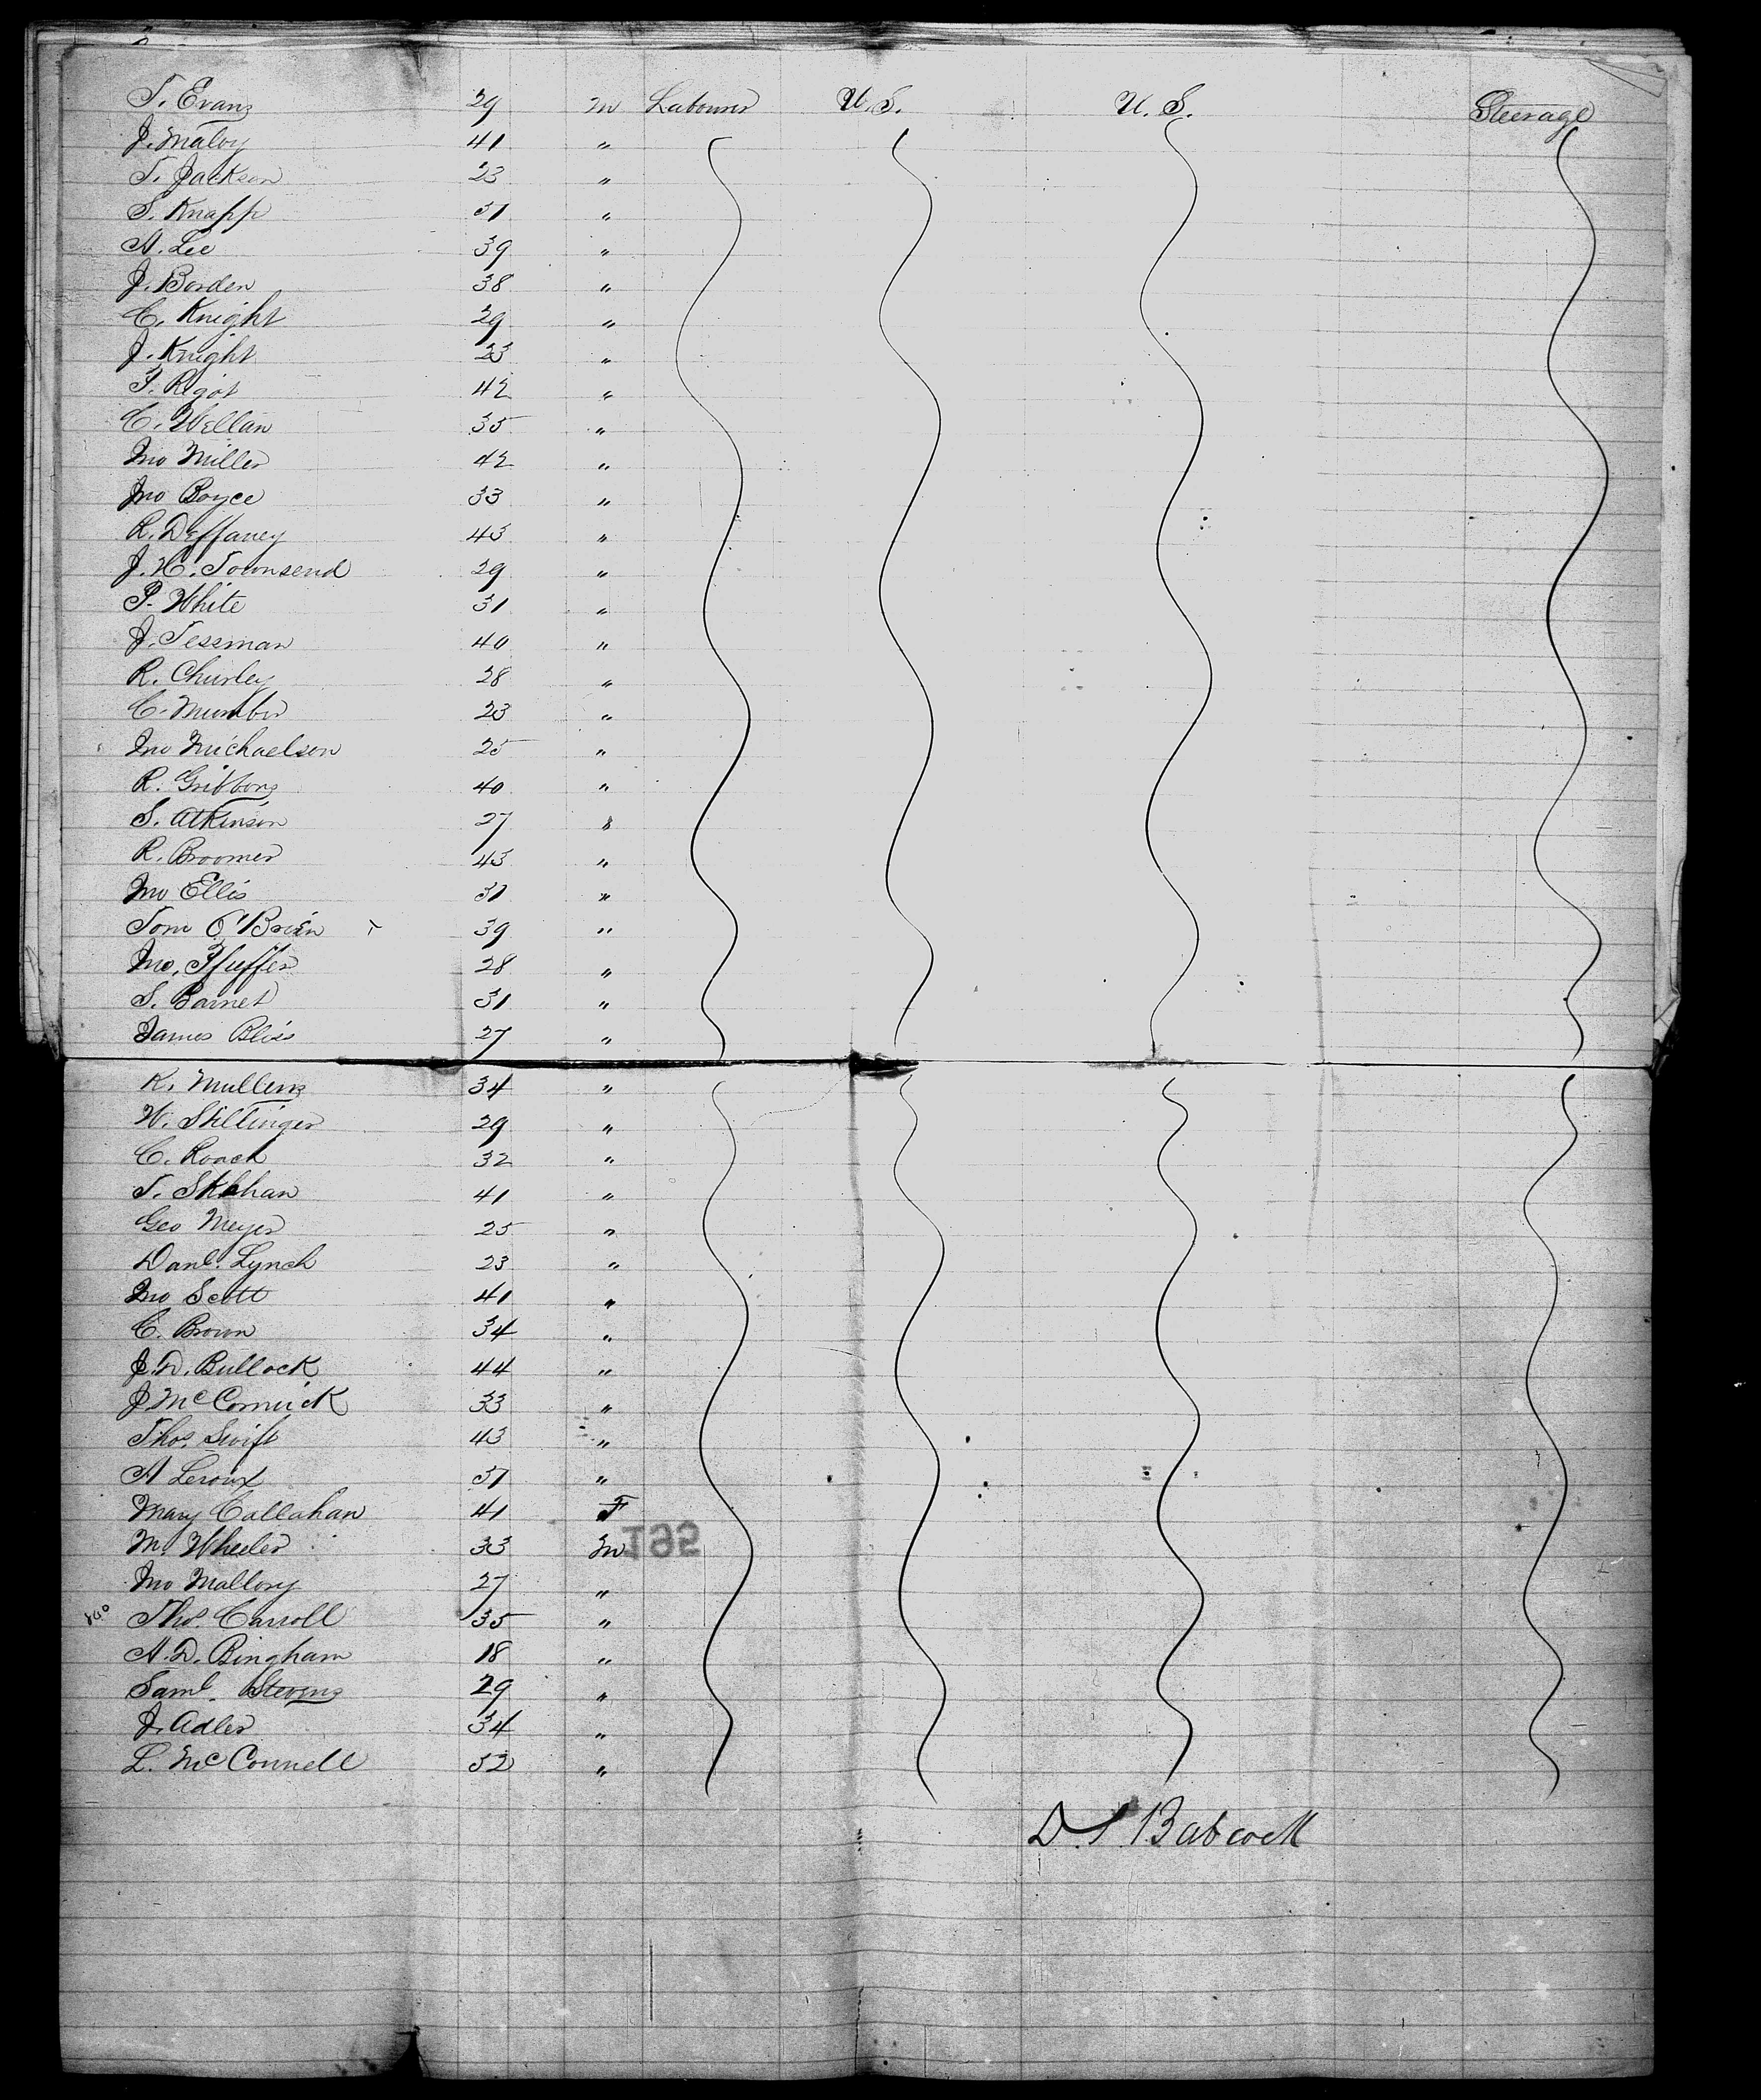 T. Evans 29 m Labourer U.S. U.S. Steerage
J. Maloy 41 "
T. Jackson 23 "
S. Knapp 31 "
A. Lee 39 "
J. Borden 38 "
C. Knight 29 "
J. Knight 23 "
F. Rigot 42 "
C. Wellan 35 "
Jno Miller 42 "
Jno Boyce 33 "
R. Deffaney 43 "
J. H. Townsend 29 "
P. White 31 "
J. Tessman 40 "
R. Churley 28 "
C. Mumber 23 "
Jno Michaelson 25 "
R. Gribbons 40 "
S. Atkinson 27 "
R. Broomer 43 "
Jno Ellis 31 "
Tom O'Brien x 39 "
Jno. Pfuffer 28 "
S. Barnet 31 "
James Bliss 27 "
K. Mullens 34 "
W. Stillinger 29 "
C. Roach 32 "
T. Skehan 41 "
Geo Meyer 25 "
Danl. Lynch 23 "
Jno Scott 41 "
C. Brown 34 "
J. D. Bullock 44 "
J McCormick 33 "
Thos. Swift 43 "
A Leroux 37 "
Mary Callahan 41 F
M. Wheeler 33 m
Jno Mallory 27 "
Thos. Carroll 35 "
A. D. Bingham 18 "
Saml. Stevens 29 "
J. Adler 34 "
L. McConnell 52 "
D. S. Babcock